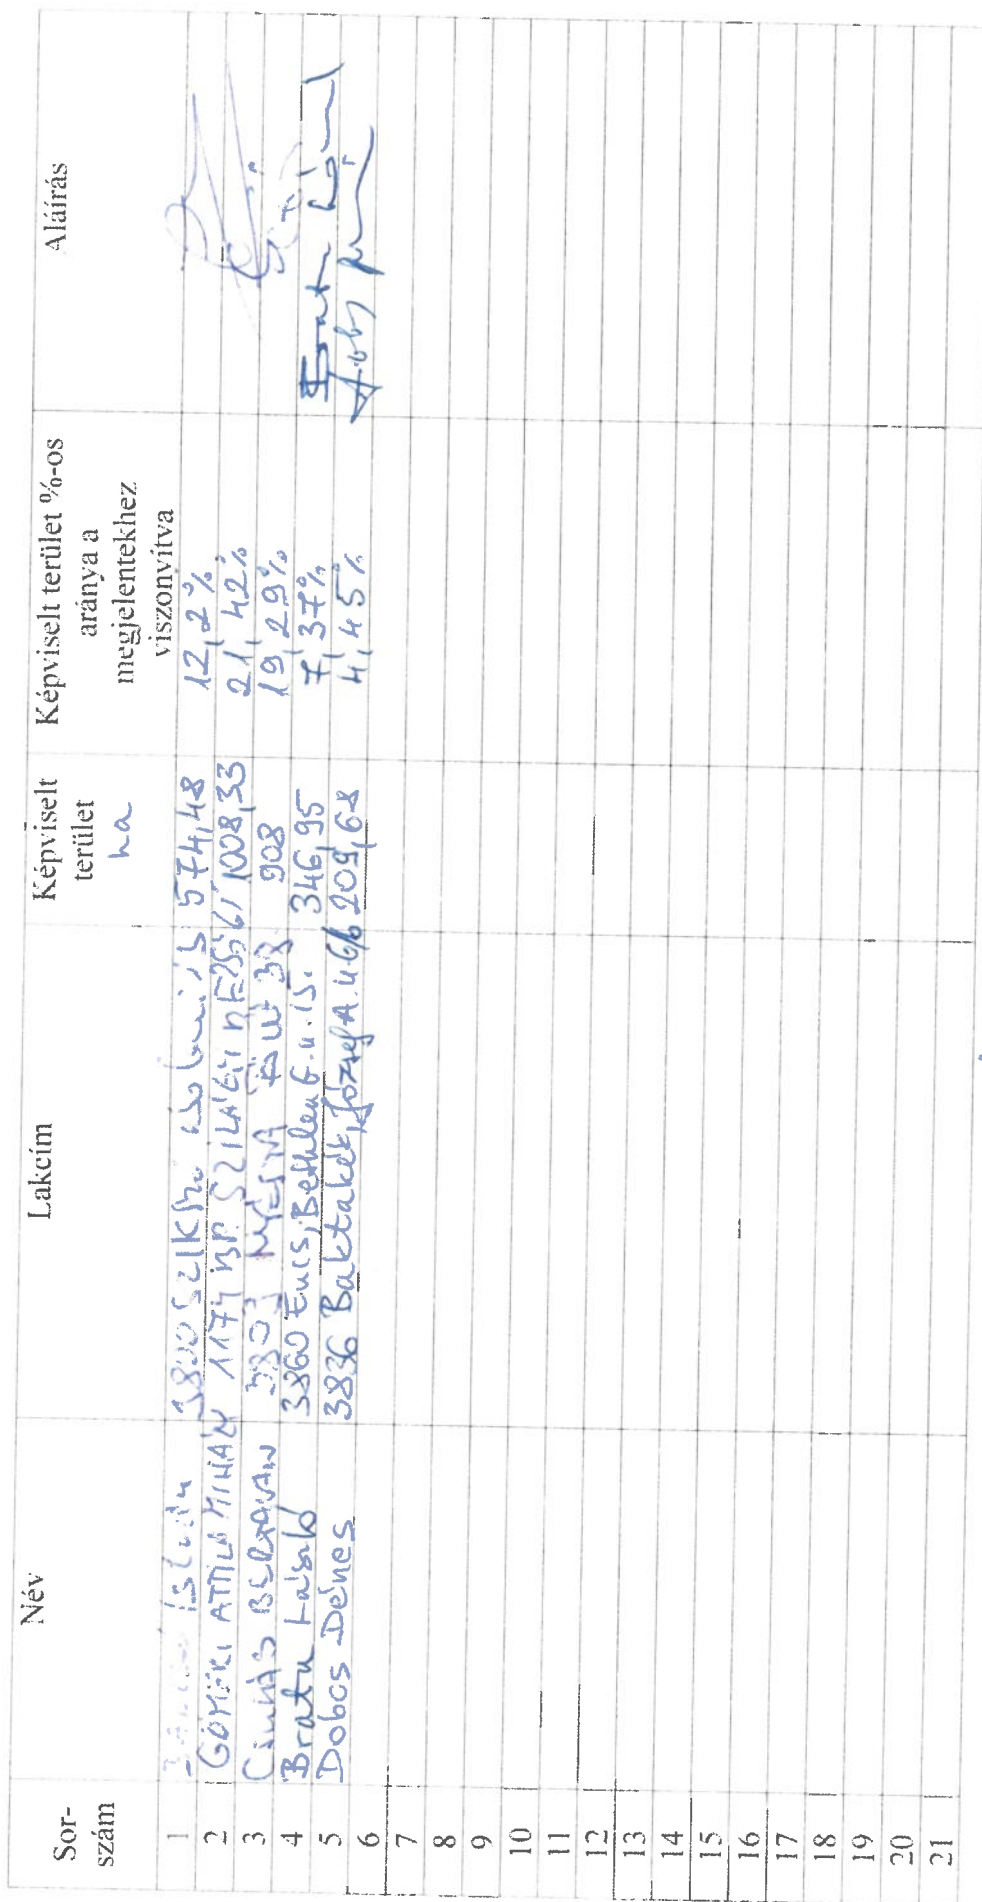 Sor-szám Név Lakcím Képviselt terület ha Képviselt terület %-os aránya a megjelentekhez viszonyítva Aláírás
1 István 3800 SZIKSZÓ 574,48 12,2%
2 GÖMÖRI ATTILA MIHÁLY 1174 BP SZILÁGYI 1008,33 21,42%
3 BERTALAN 908 19,29%
4 Bratu László 3860 Encs, Bethlen G. u. 15. 346,95 7,37%
5 Dobos Dénes 3836 Baktakék, József A. u 6/b 209,68 4,45%
6
7
8
9
10
11
12
13
14
15
16
17
18
19
20
21